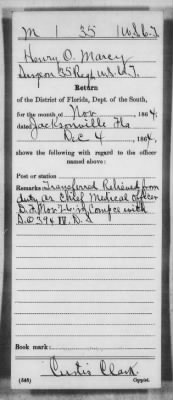 M | 35 | U.S.C.T.
Henry O. Marcy
Surgeon 35 Regt U.S.C.T.
Return
of the District of Florida, Dept. of the South,
for the month of Nov, 1864;
dated Jacksonville Fla
Dec 4, 1864,
shows the following with regard to the officer
named above:
Post or station
Remarks: Transferred Relieved from
duty as Chief Medical Officer
D.F. Nov 7 in Compce with
S.O. 394 D.S.
Book mark:
Curtis Clark
(546) Copyist.